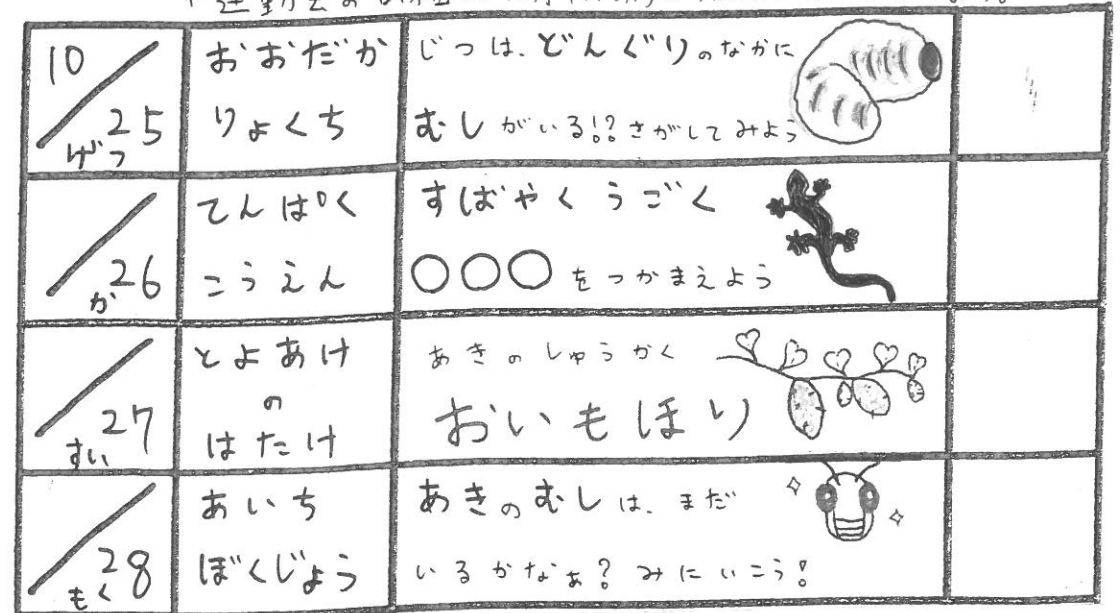 10/25 げつ
おおだか
りょくち
じつは、どんぐりのなかに
むしがいる!?さがしてみよう
/26 か
てんぱく
こうえん
すばやくうごく
○○○をつかまえよう
/27 すい
とよあけ
の
はたけ
あきのしゅうかく
おいもほり
/28 もく
あいち
ぼくじょう
あきのむしは、まだ
いるかなぁ?みにいこう!